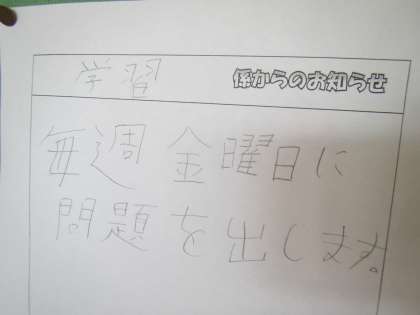 学習 係からのお知らせ
毎週金曜日に
問題を出します。